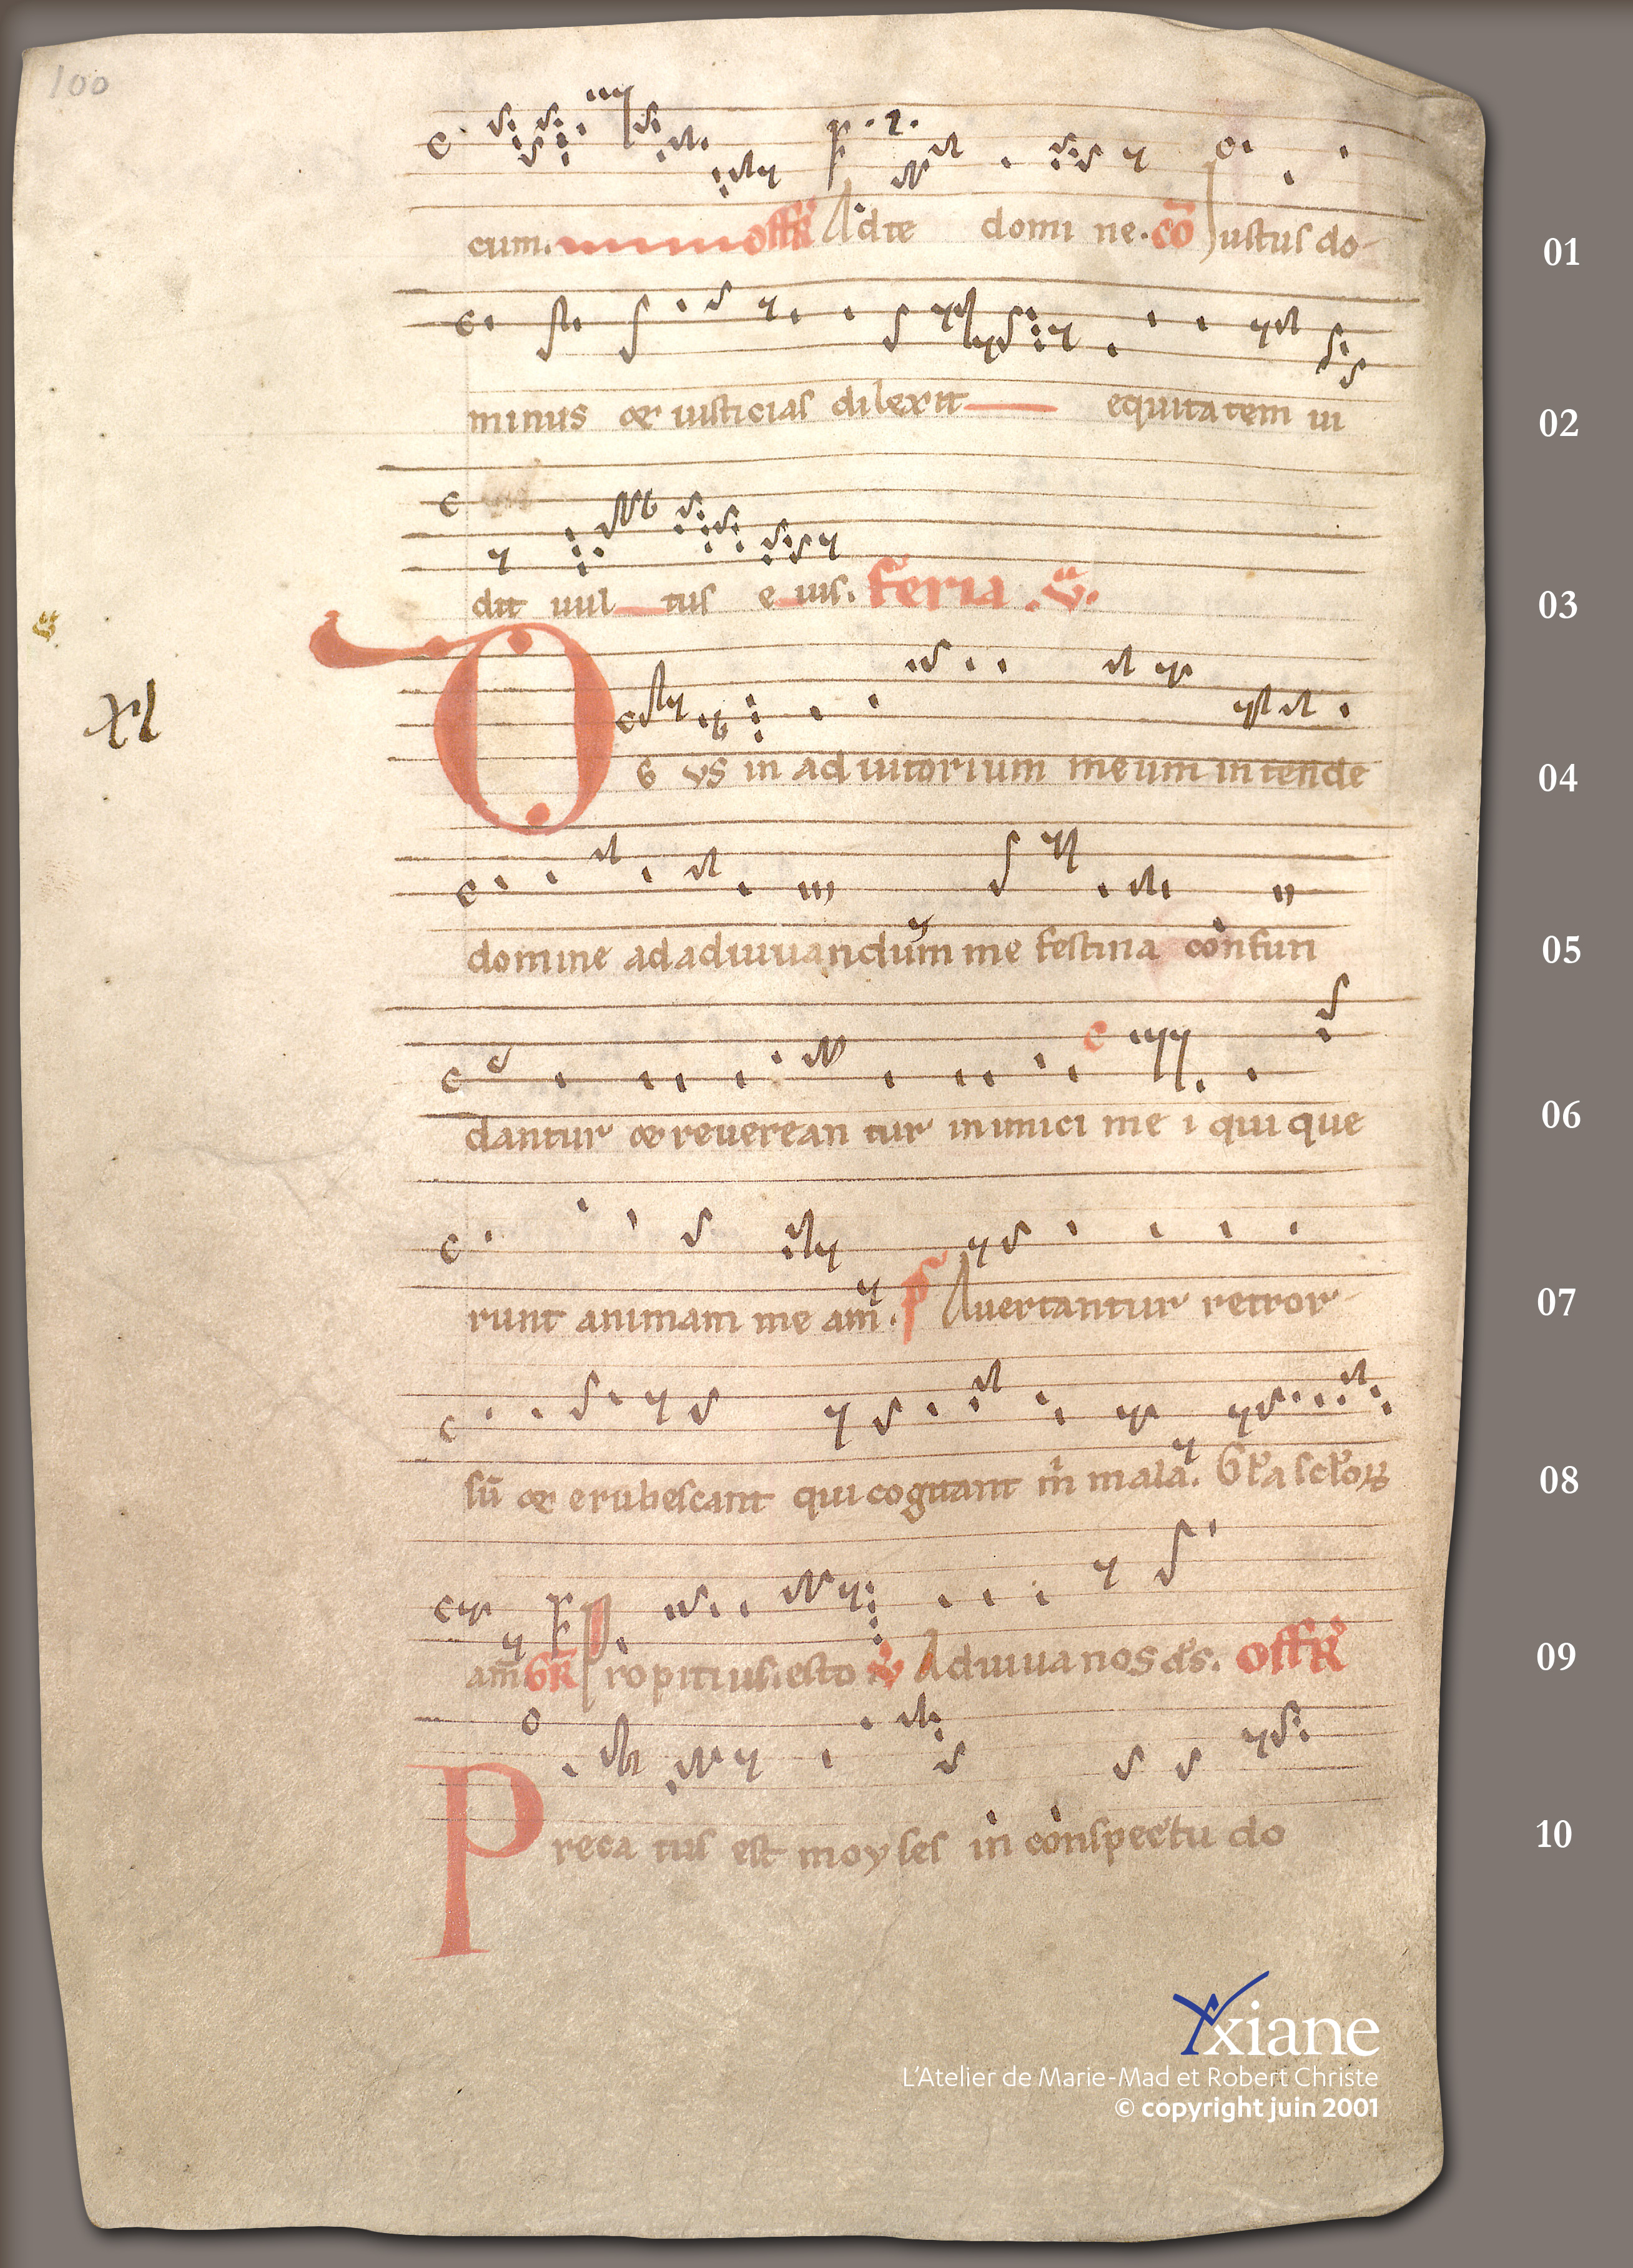 100
cum. offR Ad te domi ne. cō Justus do-
01
minus et iusticias dilexit equitatem ui
02
dit uul tus e ius. Feria .v.
03
xl
DE US in adiutorium meum intende
04
domine ad adiuuandum me festina confun
05
dantur et reuerean tur inimici me i qui que
06
runt animam me am̄. p̄s Auertantur retror-
07
sū et erubescant qui cogitant m̄ mala. Gl'a scl'oꝝ
08
am̄. GR Propitius esto v Adiuua nos d̄s. OffR
09
Preca tus est moyses in conspectu do
10
Yxiane
L'Atelier de Marie-Mad et Robert Christe
© copyright juin 2001